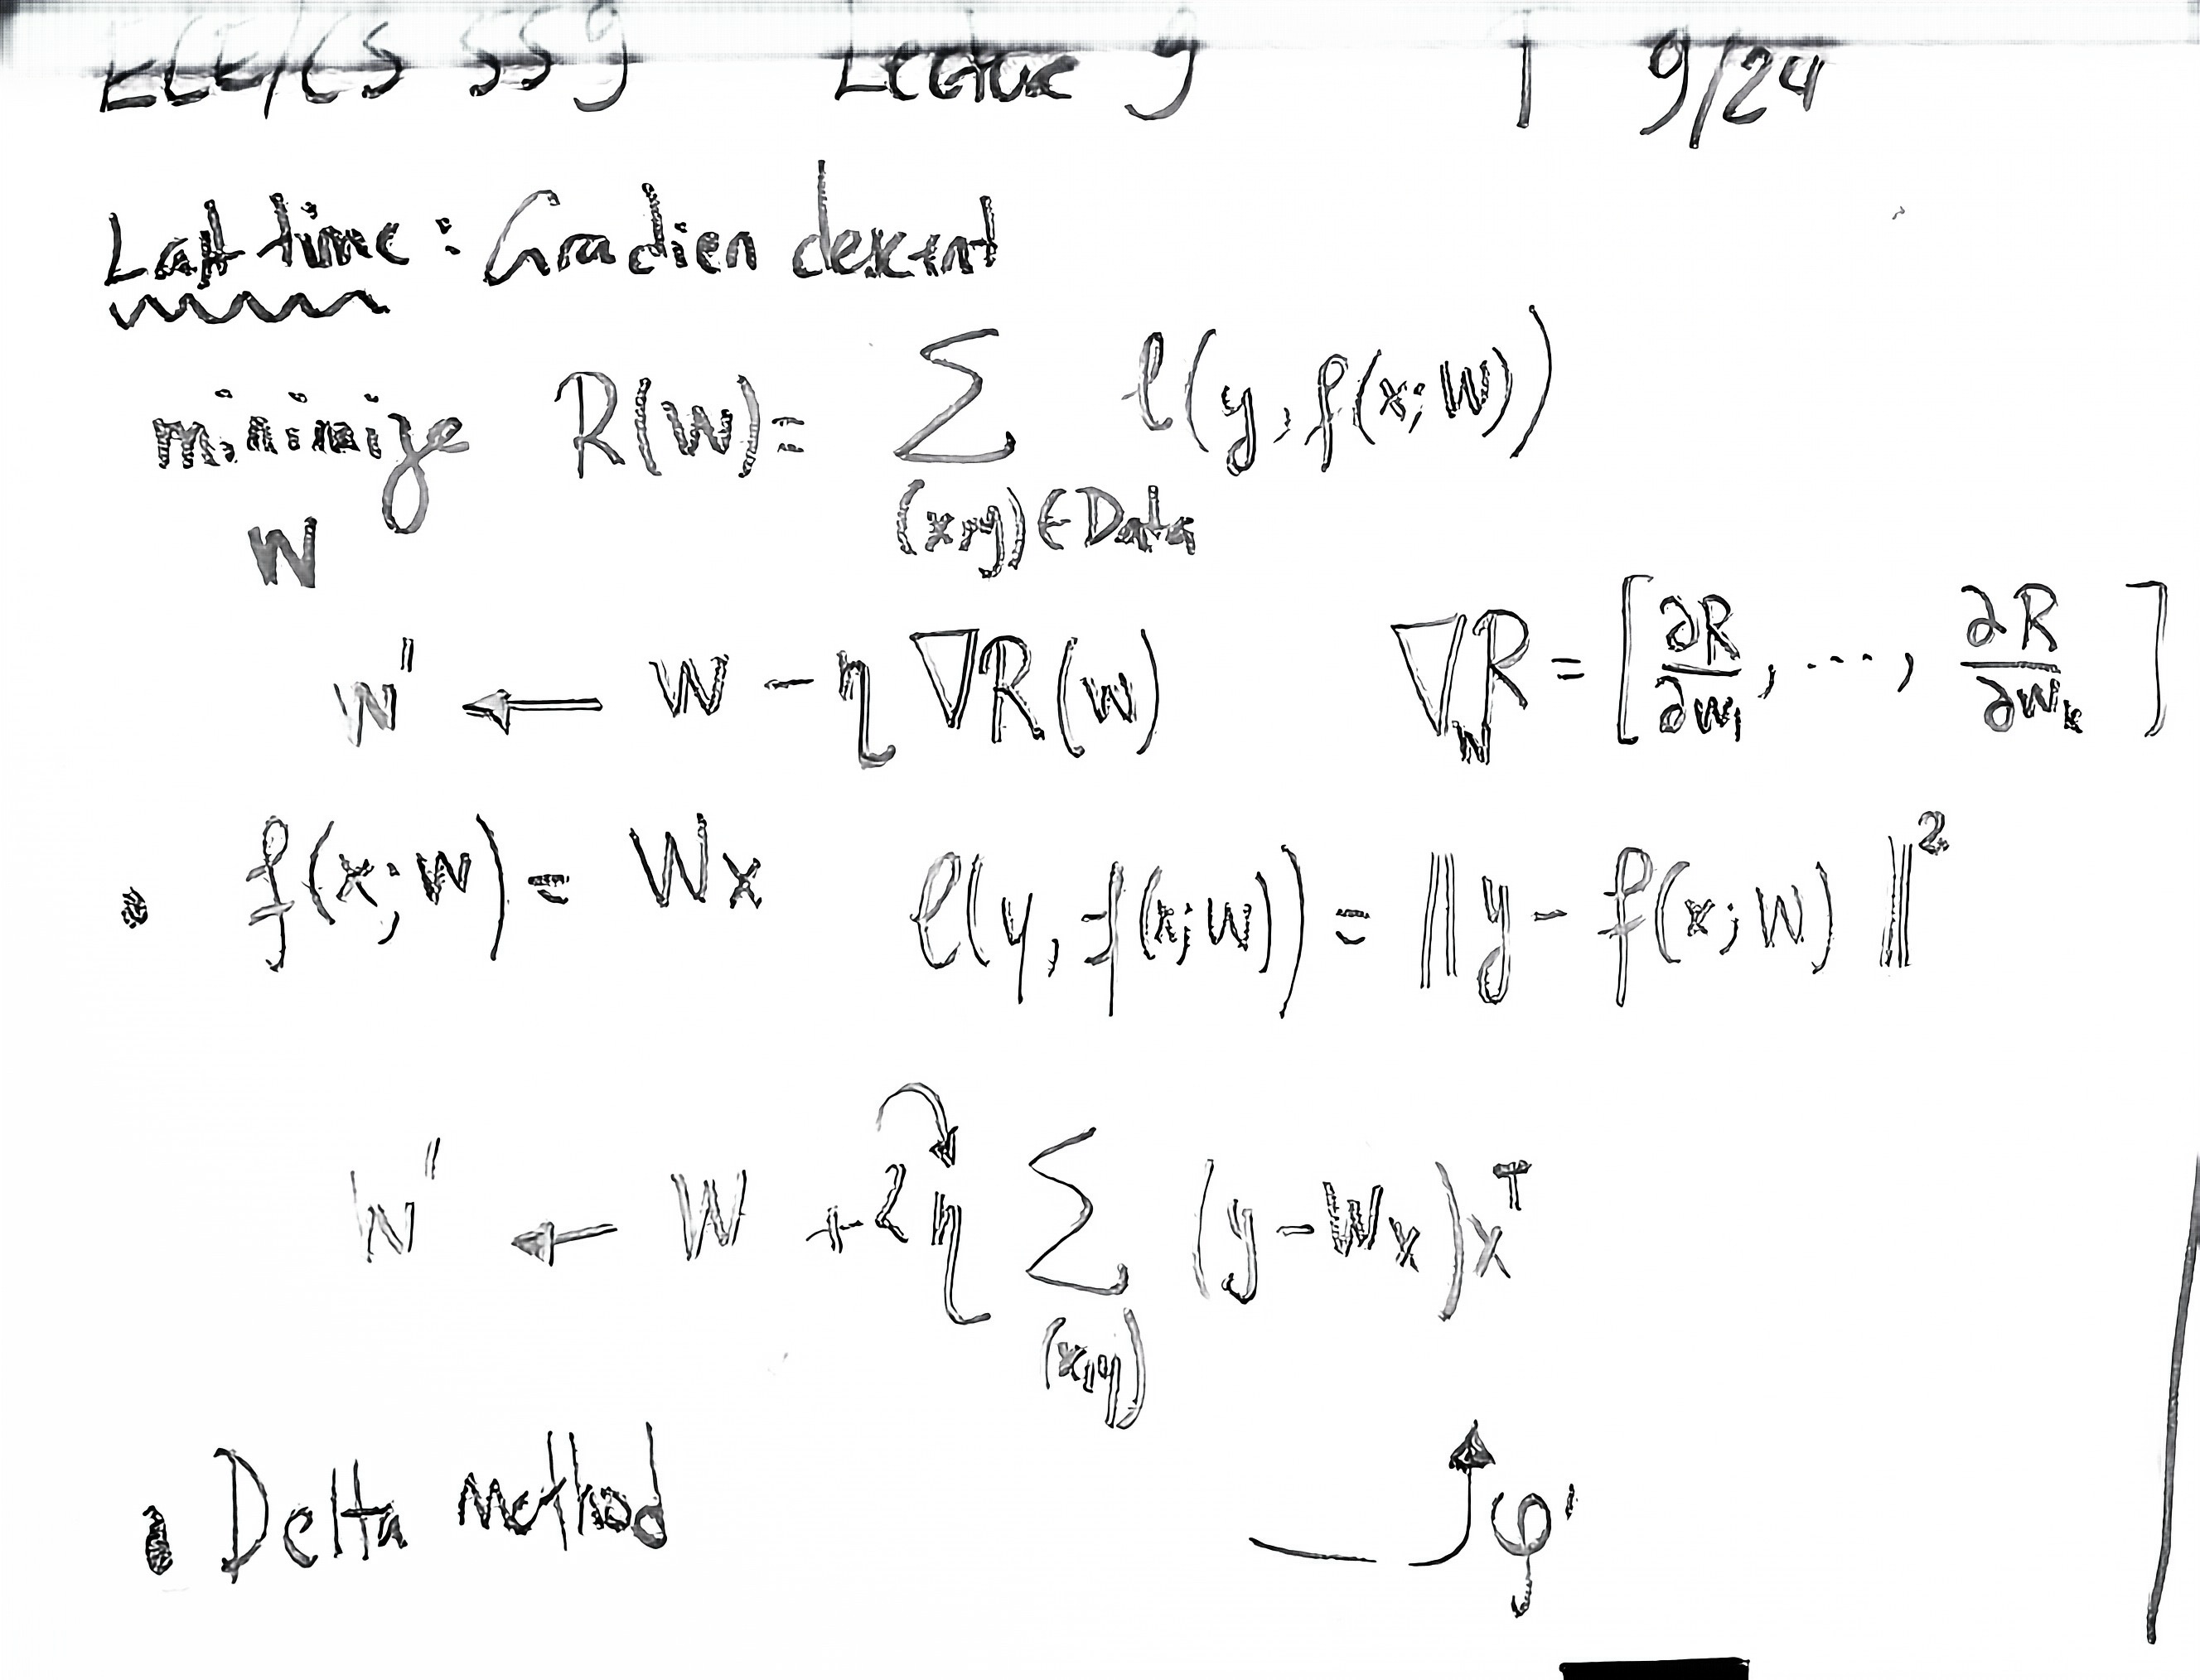 ECE/CS 559 Lecture 9 T 9/24
Last time: Gradien descent
minimize R(W) = ∑ ℓ(y, f(x; W))
W (x,y) ∈ Data
W' ← W - η ∇R(W) ∇_W R = [∂R/∂w₁, ...., ∂R/∂w_k]
• f(x; W) = Wx ℓ(y, f(x; W)) = ‖y - f(x; W)‖²
W' ← W + 2η ∑ (y - Wx)xᵀ
(x,y)
• Delta method φ'